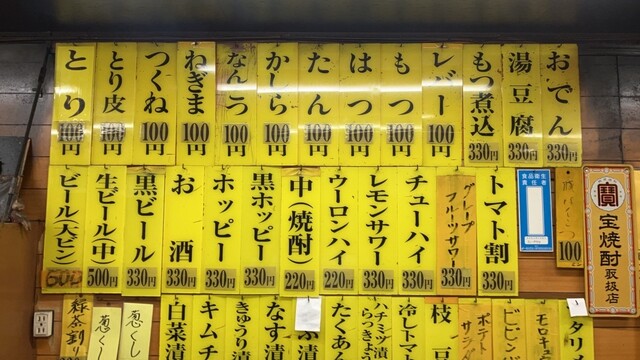 おでん 330円
湯豆腐 330円
もつ煮込 330円
レバー 100円
もつ 100円
はつ 100円
たん 100円
かしら 100円
なんこつ 100円
ねぎま 100円
つくね 100円
とり皮 100円
とり 100円
寳 宝焼酎 取扱店
100円
食品衛生責任者
トマト割 330円
グレープフルーツサワー 330円
チューハイ 330円
レモンサワー 330円
ウーロンハイ 220円
中(焼酎) 220円
黒ホッピー 330円
ホッピー 330円
お酒 330円
黒ビール 330円
生ビール(中) 500円
ビール(大ビン) 600
タリメ
モロキ
ビビン
ポテト
サラダ
枝豆
冷しトマト
ハチミツ
らっきょう
たくあん
漬
なす漬
きゅうり漬
キムチ
白菜漬
葱くし
葱くし
緑茶割り